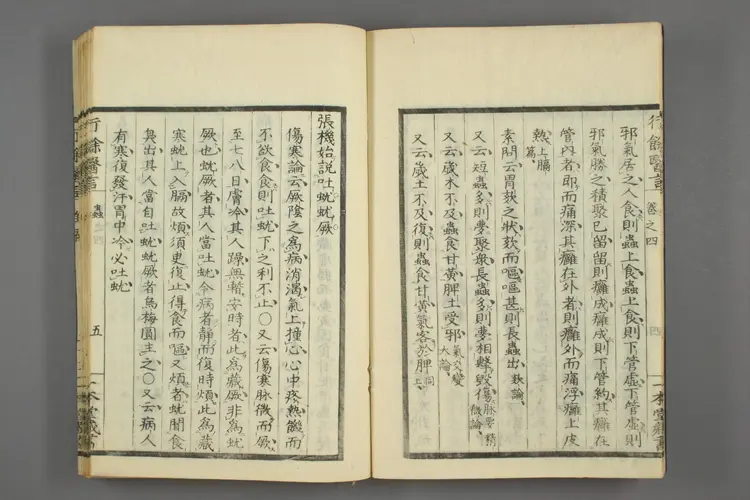 行餘醫言 卷之四
邪氣居之人食則蟲上食蟲上食則下管虛下管虛則
邪氣勝之積聚已留留則癰成癰成則下管約其癰在
管內者卽而痛深其癰在外者則癰外而痛浮癰上皮
熱上膈篇
素問云胃欬之狀欬而嘔嘔甚則長蟲出欬論
又云短蟲多則夢聚衆長蟲多則夢相擊毀傷脈要精微論
又云歲木不及蟲食甘黃脾土受邪氣交變大論
又云歲土不及復則蟲食甘黃氣客於脾同上
張機始說吐蚘蚘厥
傷寒論云厥陰之爲病消渴氣上撞心心中疼熱饑而
不欲食食則吐蚘下之利不止〇又云傷寒脉微而厥
至七八日膚冷其人躁無暫安時者此爲藏厥非爲蚘
厥也蚘厥者其人當吐蚘今病者靜而復時煩此爲藏
寒蚘上入膈故煩須臾復止得食而嘔又煩者蚘聞食
臭出其人當自吐蚘蚘厥者烏梅圓主之〇又云病人
有寒復發汗胃中冷必吐蚘
行餘醫言 蟲 卷之四 五 一本堂藏